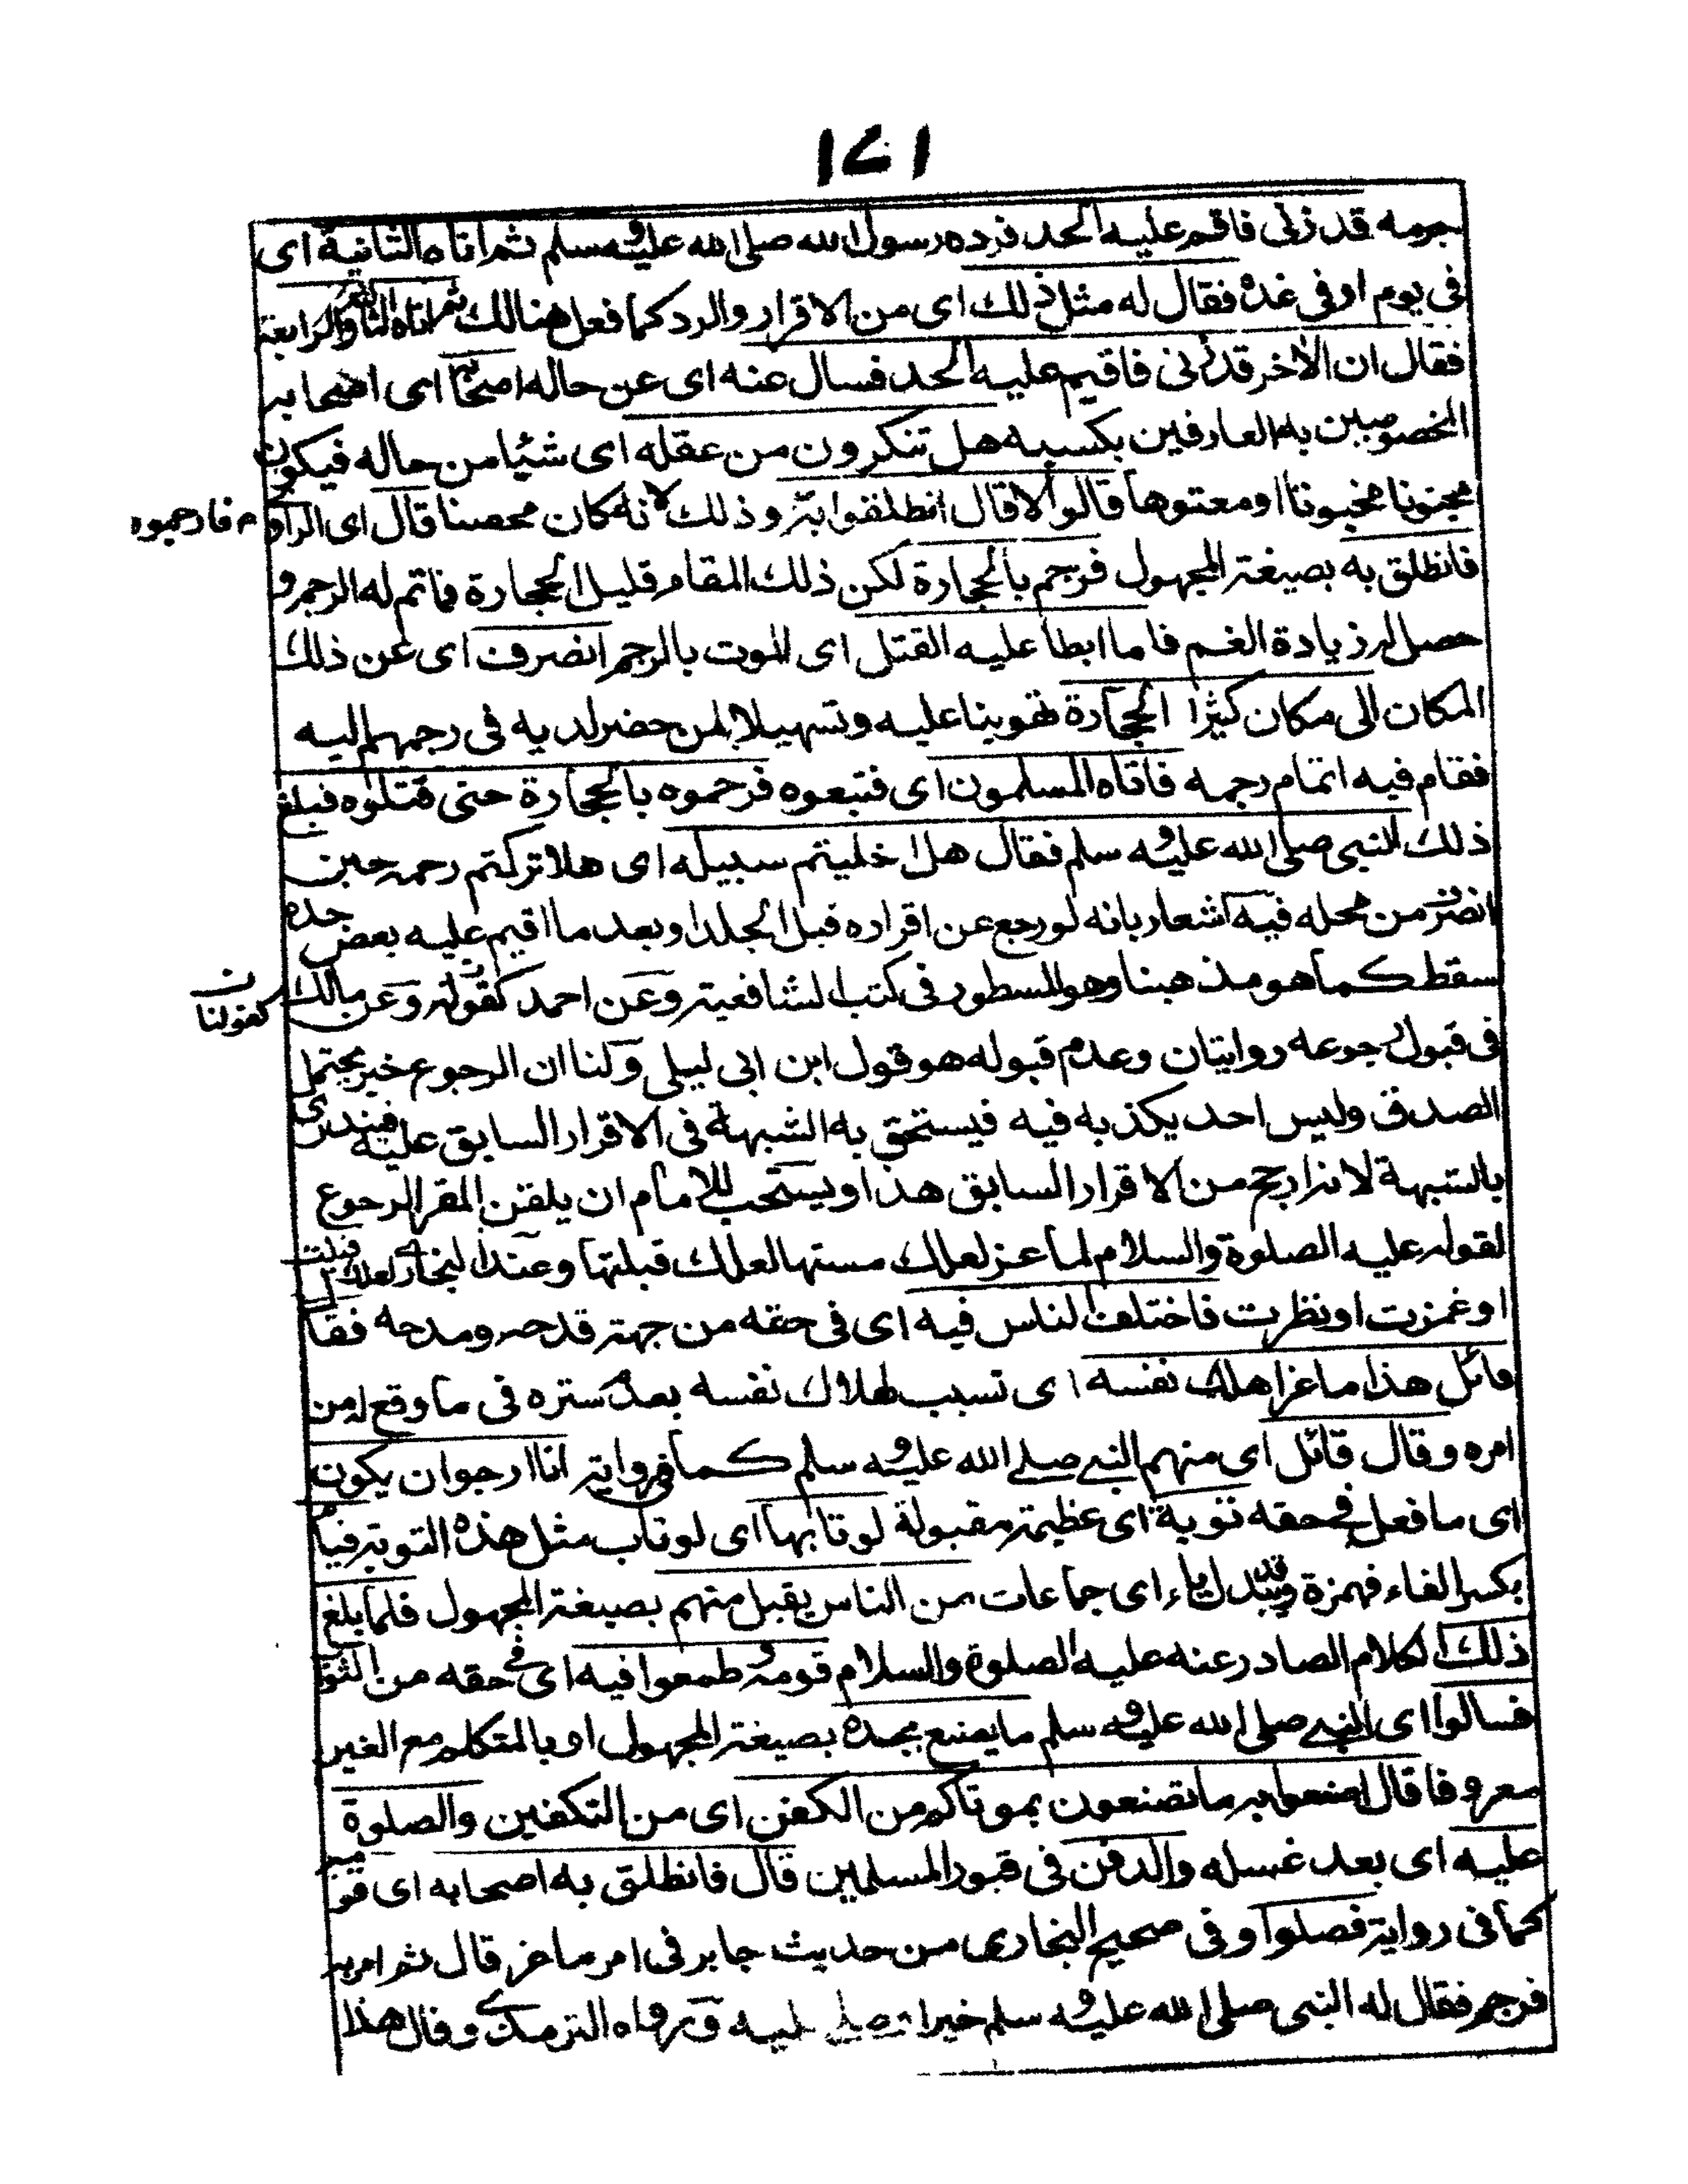 ١٧١
بجرمه قد زنى فاقم عليه الحد فرده رسول الله صلى الله عليه وسلم ثم اتاه الثانية اى
فى يوم او فى غده فقال له مثل ذلك اى من الاقرار والرد كما فعل هنالك ثم اتاه الثالثة والرابعة
فقال ان الاخر قد زنى فاقيم عليه الحد فسال عنه اى عن حاله اصحابه اى اصحابه
المخصوصين به العارفين بكسبه هل تنكرون من عقله اى شئيا من حاله فيكون
مجنونا مخبوتا او معتوها قالوا لا قال انطلقوا به وذلك لانه كان محصنا قال اى الراوى
فارجموه
فانطلق به بصيغة المجهول فرجم بالحجارة لكن ذلك المقام قليل الحجارة فما تم له الرجم و
حصل له زيادة الغم فلما ابطأ عليه القتل اى الموت بالرجم انصرف اى عن ذلك
المكان الى مكان كثير الحجارة تهوينا عليه وتسهيلا لمن حضر لديه فى رجمهم اليه
فقام فيه اتمام رجمه فاتاه المسلمون اى فتبعوه فرجموه بالحجارة حتى قتلوه فبلغ
ذلك النبى صلى الله عليه وسلم فقال هلا خليتم سبيله اى هلا تركتم رجمه حين
انصرف من محله فيه اشعار بانه لو رجع عن اقراره قبل الجلد او بعد ما اقيم عليه بعض حده
سقط كما هو مذهبنا وهو المسطور فى كتب الشافعية وعن احمد كقوله وعن مالك
كقولنا
فى قبول رجوعه روايتان وعدم قبوله هو قول ابن ابى ليلى ولنا ان الرجوع خبر يحتمل
الصدق وليس احد يكذبه فيه فيستحق به الشبهة فى الاقرار السابق عليه فيندرى
بالشبهة لانه ارجح من الاقرار السابق هذا ويستحب للامام ان يلقن المقر الرجوع
لقوله عليه الصلوة والسلام لماعز لعلك مستها لعلك قبلتها وعند البخارى لعلك قبلت
او غمزت او نظرت فاختلف الناس فيه اى فى حقه من جهة قدحه ومدحه فقال
قائل هذا ماعز اهلك نفسه اى تسبب لهلاك نفسه بعدم ستره فى ما وقع له من
امره وقال قائل اى منهم النبى صلى الله عليه وسلم كما فى رواية انا ارجو ان يكون
اى ما فعل فى حقه توبة اى عظيمة مقبولة لو تاب بها اى لو تاب مثل هذه التوبة فيام
بكسر الفاء فهمزة وقد يبدل ياء اى جماعات من الناس يقبل منهم بصيغة المجهول فلما بلغ
ذلك الكلام الصادر عنه عليه الصلوة والسلام قومه وطمعوا فيه اى فى حقه من
فسالوا اى النبى صلى الله عليه وسلم ما يصنع بجسده بصيغة المجهول او بالمتكلم مع الغير
معروفا قال اصنعوا به ما تصنعون بموتاكم من الكفن اى من التكفين والصلوة
عليه اى بعد غسله والدفن فى قبور المسلمين قال فانطلق به اصحابه اى
كما فى رواية فصلوا وفى صحيح البخارى من حديث جابر فى امر ماعز قال ثم امر به
فرجم فقال له النبى صلى الله عليه وسلم خيرا وصلى عليه ورواه الترمذى وقال هذا